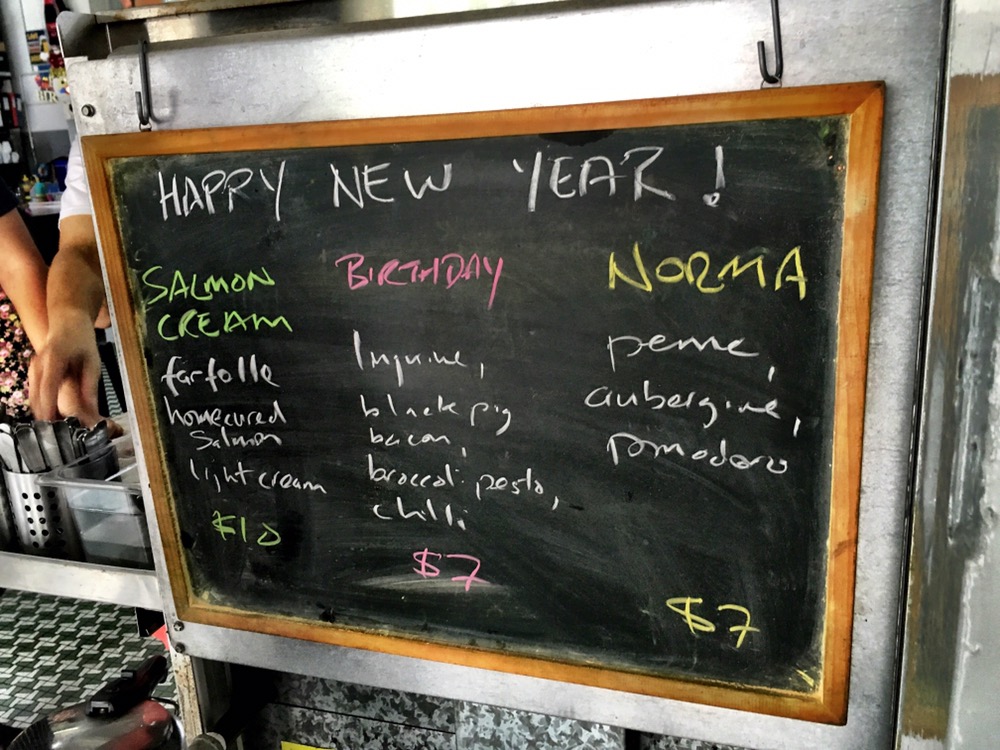 HAPPY NEW YEAR!
SALMON
CREAM
farfalle
homecured
Salmon
light cream
$10
BIRTHDAY
linguine,
black pig
bacon,
broccoli pesto,
chilli
$7
NORMA
penne,
aubergine,
pomodoro
$7